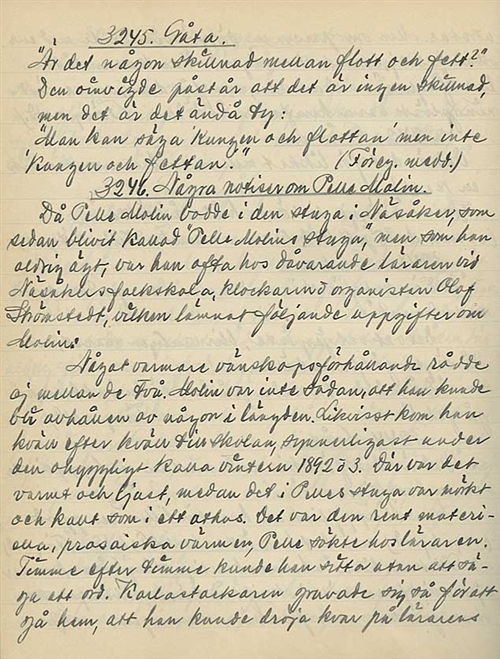 3245. Gåta.
"Är det någon skillnad mellan flott och fett?"
Den oinvigde påstår att det är ingen skillnad,
men det är det ändå ty:
"Man kan säga 'Kungen och flottan' men inte
'Kungen och fettan'." (Föreg. medd.)
3246. Några notiser om Pelle Molin.
Då Pelle Molin bodde i den stuga i Näsåker, som
sedan blivit kallad "Pelle Molins stuga", men som han
aldrig ägt, var han ofta hos dåvarande läraren vid
Näsåkers folkskola, klockaren o organisten Olof
Strömstedt, vilken lämnat följande uppgifter om
Molin:
Något varmare vänskapsförhållande rådde
ej mellan de två. Molin var inte sådan, att han kunde
bli avhållen av någon i längden. Likvisst kom han
kväll efter kväll till skolan, synnerligast under
den ohyggligt kalla vintern 1892 o 3. Där var det
varmt och ljust, medan det i Pelles stuga var mörkt
och kallt som i ett uthus. Det var den rent materi-
ella, prosaiska värmen, Pelle sökte hos läraren.
Timme efter timme kunde han sitta utan att sä-
ga ett ord. Kallastackaren gruvade sig så för att
gå hem, att han kunde dröja kvar på lärarens